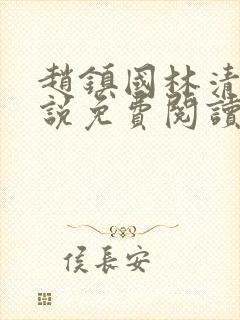 趙鎮國林清
說免費閱讀
侯長安